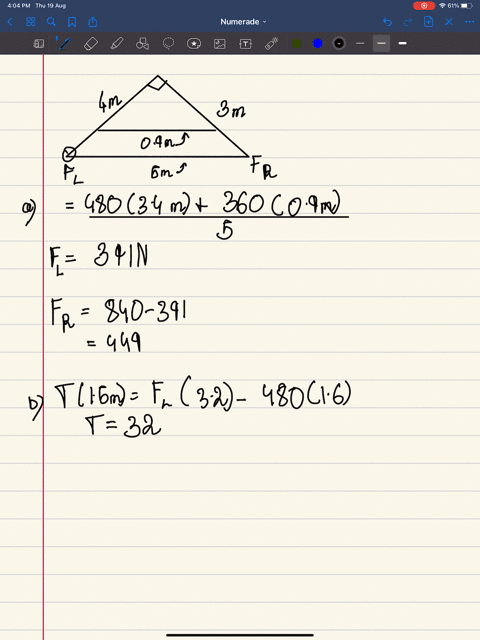 4:04 PM Thu 19 Aug
61%
Numerade
4m
3m
0.9m
5m
FL
FR
a) = 480(3.4m) + 360(0.9m)
5
FL = 391N
FR = 840-391
= 449
b) T(1.5m) = FL(3.2) - 480(1.6)
T = 32